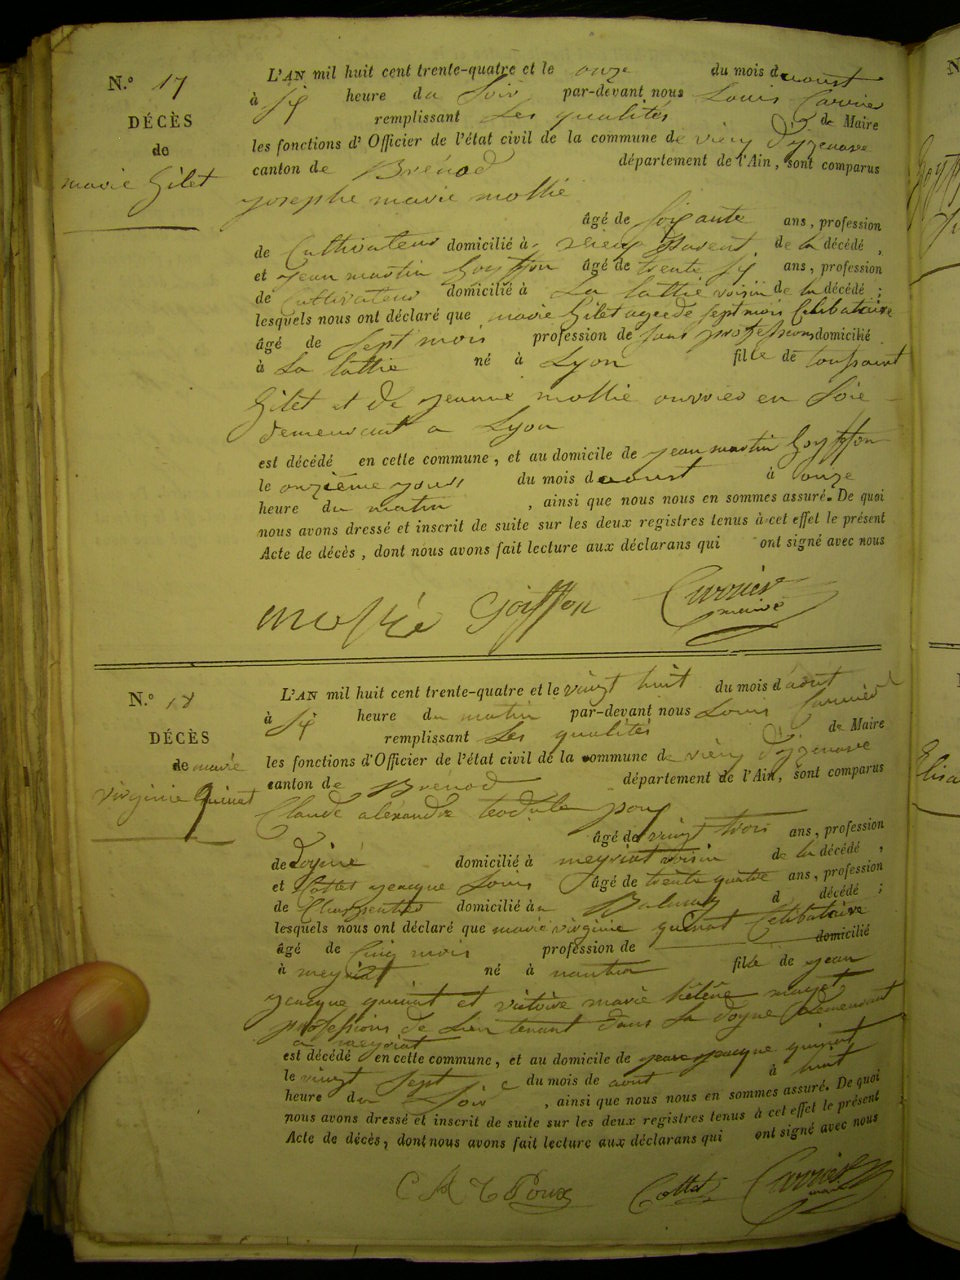 N.° 17
DÉCÈS
de
marie Gilet
L'AN mil huit cent trente-quatre et le onze du mois d'aoust
à six heure du Soir par-devant nous Louis Carrier
remplissant Les qualités de Maire
les fonctions d'Officier de l'état civil de la commune de vieu d'yzenave
canton de Brénod département de l'Ain, sont comparus
josephe marie mollie
âgé de soixante ans, profession
de Cultivateur domicilié à vieu de la décédé,
et jean martin Goyffon âgé de trente six ans, profession
de Cultivateur domicilié à La lattie voisin de la décédé;
lesquels nous ont déclaré que marie Gilet agee de sept mois Celibataire
âgé de sept mois profession de sans profession domicilié
à La lattie né à Lyon fille de toussaint
Gilet et de jeanne mollie ouvrier en Soie
demeurant a Lyon
est décédé en cette commune, et au domicile de jean martin Goyffon
le onzième jour du mois d'aoust à onze
heure du matin, ainsi que nous nous en sommes assuré. De quoi
nous avons dressé et inscrit de suite sur les deux registres tenus à cet effet le présent
Acte de décès, dont nous avons fait lecture aux déclarans qui ont signé avec nous
Goiffon Carrier
maire
N.° 18
DÉCÈS
de marie
virginie quinat
L'AN mil huit cent trente-quatre et le vingt huit du mois d'aout
à six heure du matin par-devant nous Louis Carrier
remplissant Les qualités de Maire
les fonctions d'Officier de l'état civil de la commune de vieu d'yzenave
canton de Brénod département de l'Ain, sont comparus
Claude aléxandre
âgé de vingt trois ans, profession
de domicilié à meyriat voisin de la décédé,
et jacque Louis âgé de trente quatre ans, profession
de Charpentier domicilié à d décédé;
lesquels nous ont déclaré que marie virginie quinat Célibataire
âgé de cinq mois profession de domicilié
à meyriat né à nantua fille de jean
jacque quinat et victoire marie hélène
profession de Lieutenant dans La doyne demeurant
a meyriat
est décédé en cette commune, et au domicile de jean jacque quinat
le vingt sept du mois de aout à huit
heure du Soir, ainsi que nous nous en sommes assuré. De quoi
nous avons dressé et inscrit de suite sur les deux registres tenus à cet effet le présent
Acte de décès, dont nous avons fait lecture aux déclarans qui ont signé avec nous
Cottet Carrier
maire